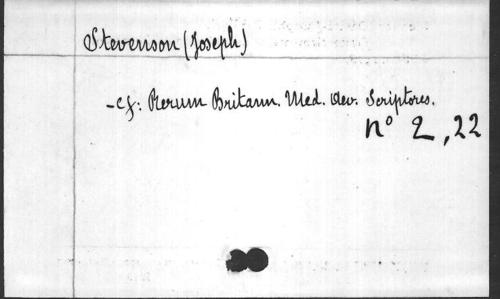 Stevenson (Joseph)
- cf: Rerum Britann. Med. Aev. Scriptores.
n° 2, 22